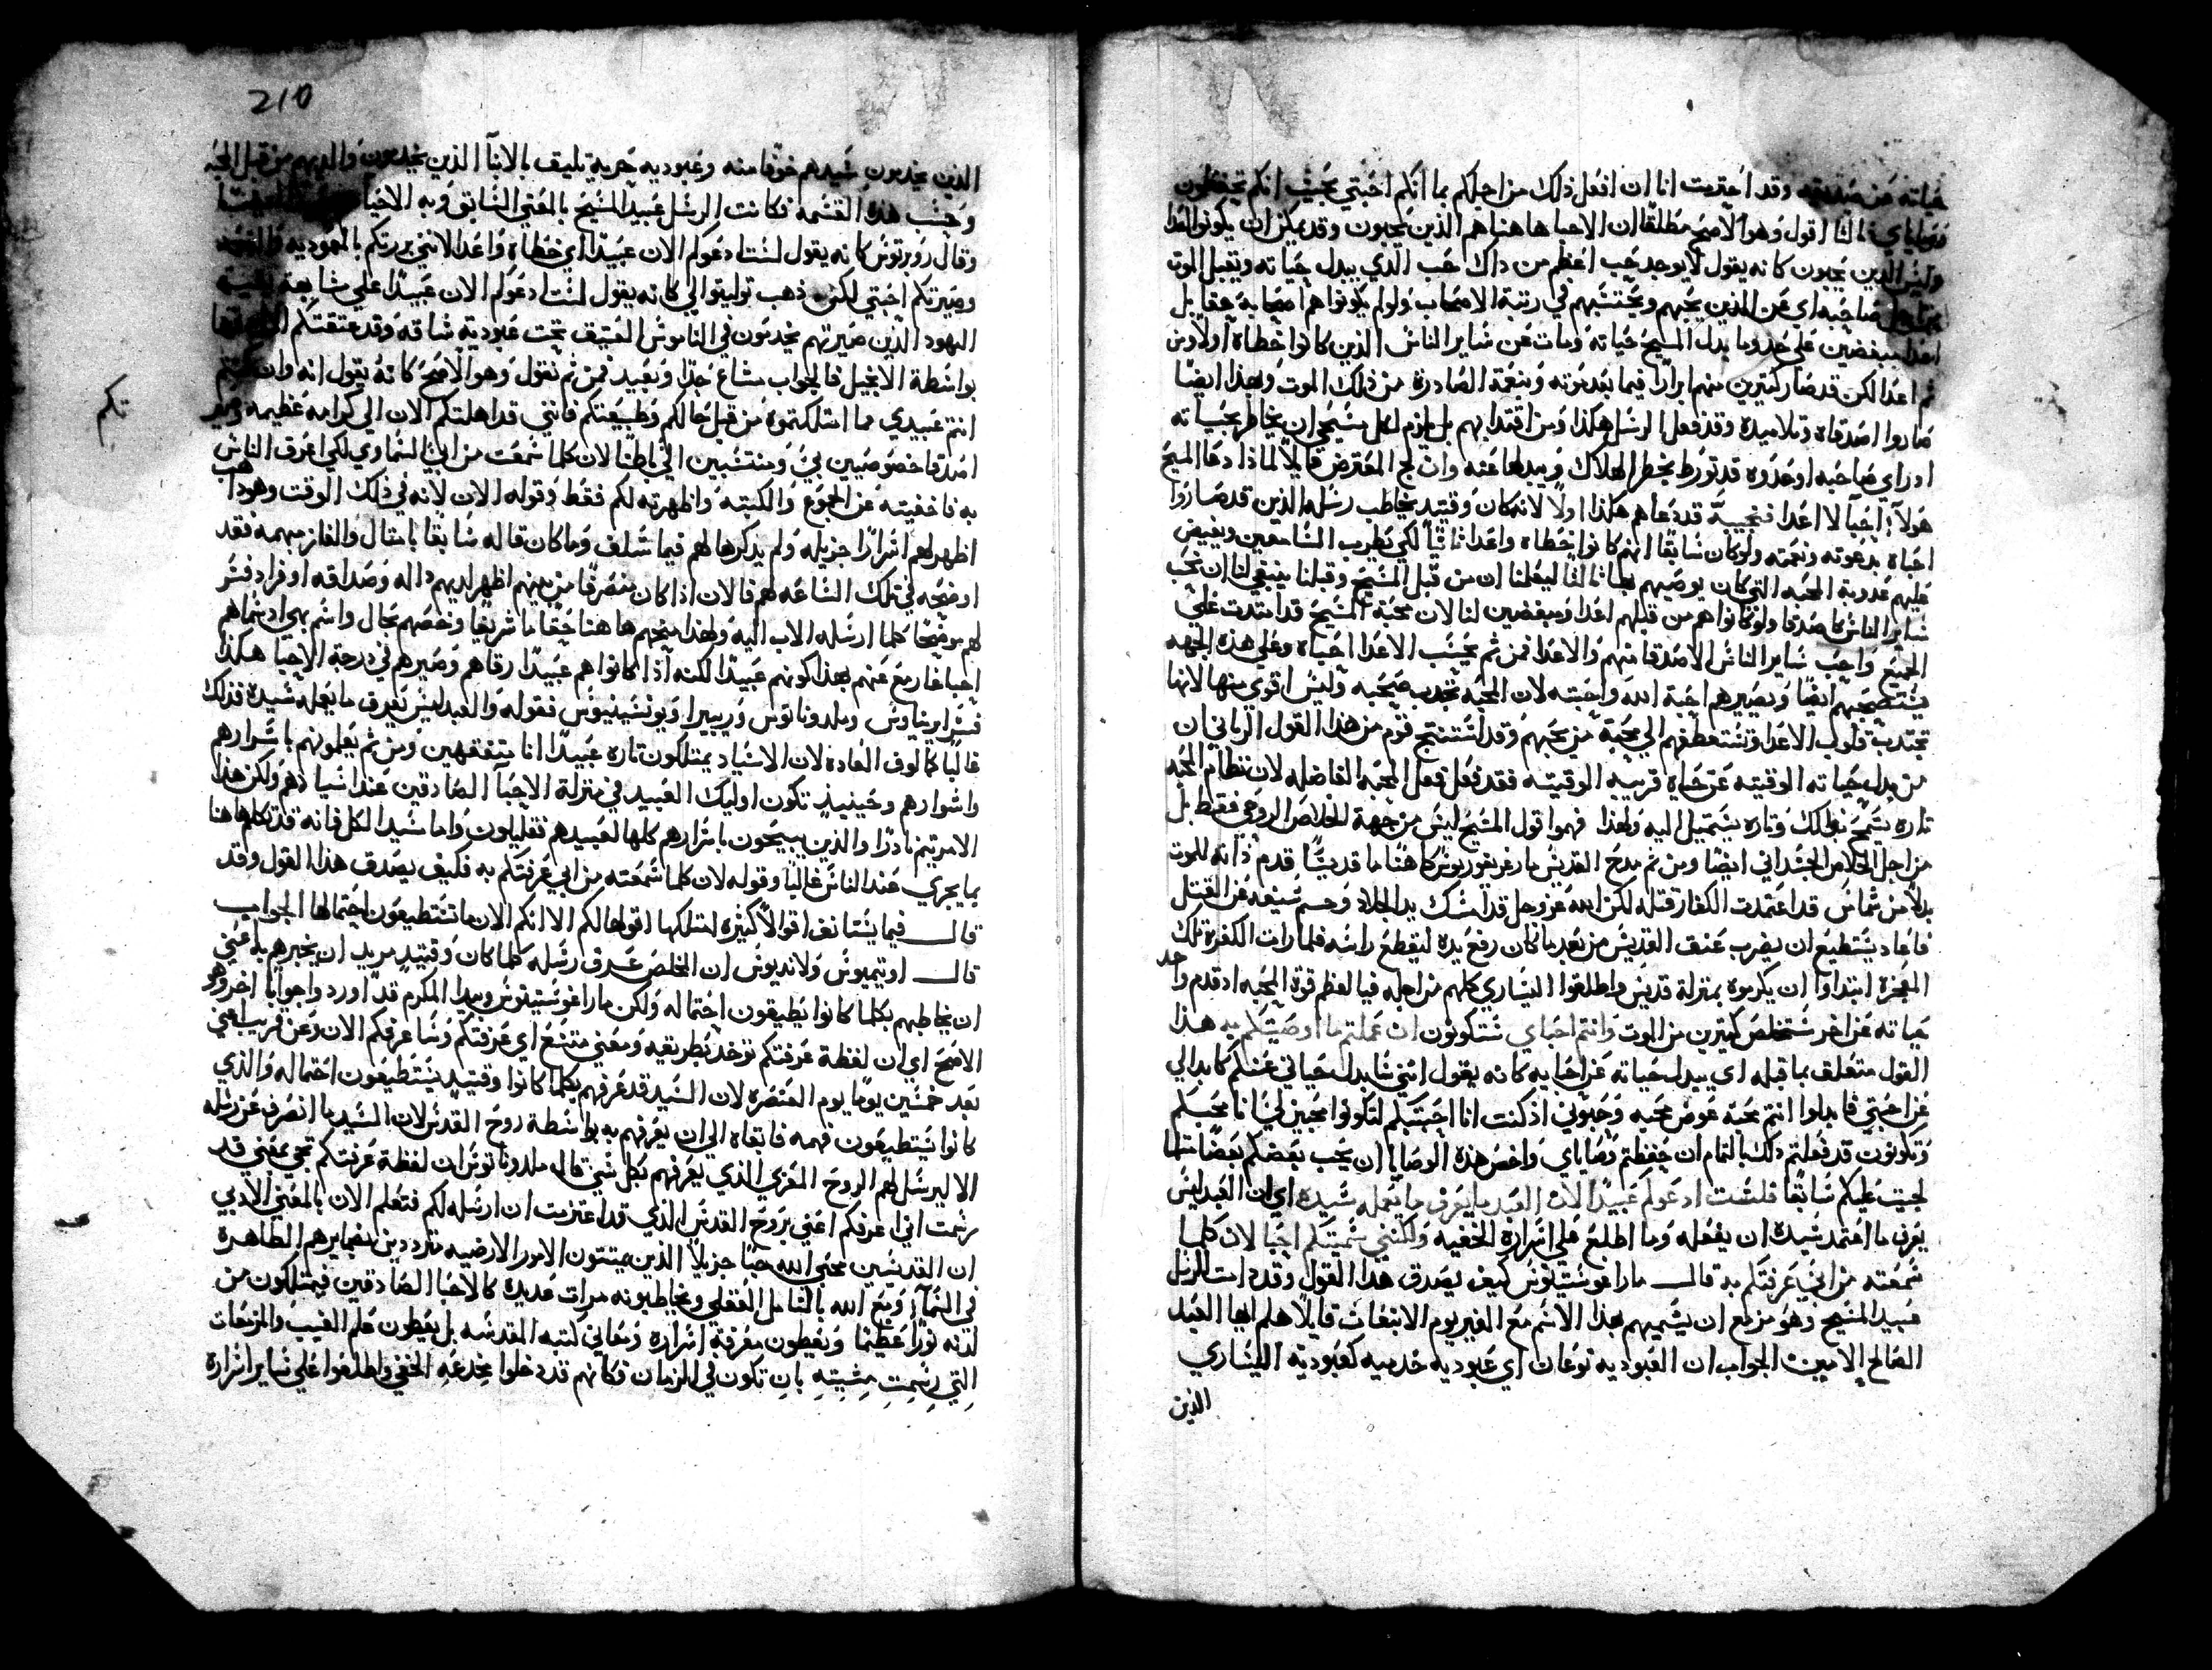 حياته عن صديقه وقد اعتزمت انا ان افعل ذلك من اجلكم بما انكم احبتي بحيث انكم تحفظون
وصاياي ثالثا اقول وهو الاصح مطلقا ان الاحبا هاهنا هم الذين يحبون وقد يمكن ان يكونوا اعدا
وليس الذين يحبون كانه يقول لا يوجد حب اعظم من ذاك حب الذي يبدل حياته ويقبل الموت
صاحبه اي عن الذين يحبهم ويحتسبهم في رتبة الاصحاب ولو لم يكونوا هم اصحابه حقا بل
اعدا مبغضين على حد وما بدل المسيح حياته ومات عن ساير الناس الذين كانوا خطاة اولا ومن
ثم اعدا لكن قد صار كثيرين منهم ابرارا فيما بعد موته وبنعمة الصادرة من ذلك الموت وبهذا ايضا
صاروا اصدقاه وتلاميده وقد فعل الرسل هكذا ومن اقتدا بهم بل يلزم لكل مسيحي ان يخاطر بحياته
اذ راي صاحبه او عدوه قد تورط بخطر الهلاك ويبدلها عنه وان لج المعترض قايلا لماذا دعا المسيح
هولآء احبآ لا اعدا فنجيبه قد دعاهم هكذا اولا لانه كان وقتيد يخاطب رسله الذين قد صاروا
احباه بدعوته ونعمته ولو كان سابقا انهم كانوا خطاه واعدا ثانيا لكي يطرب السامعين ويفيض
عليهم عدوبة المحبه التي كان يوصيهم بها ثالثا ليعلمنا ان من قبل المسيح وقبلنا ينبغي لنا ان نحب
ساير الناس كاصدقا ولو كانوا هم من قبلهم اعدا ومبغضين لنا لان محبة المسيح قد امتدت على
الجميع واحب ساير الناس الاصدقا منهم والاعدا فمن ثم يحتسب الاعدا احباه وعلى هذه الجهه
يستصحبهم ايضا ويصيرهم احبة الله واحبته لان المحبه تجدب صحبه وليس اقوي منها لانها
تجتدب قلوب الاعدا وتستعطفهم الي محبة من يحبهم وقد استنتج قوم من هذا القول الرباني ان
من بدل حياته الوقتيه عن حياة قريبه الوقتيه فقد فعل فعل المحبه الفاضله لان نظام المحبه
تاره يسمح بذلك وتاره يستميل اليه ولهذا فهموا قول المسيح ليس من جهة الخلاص الروحي فقط بل
من اجل الخلاص الجسداني ايضا ومن ثم مدح القديس مار غريغوريوس كاهنا ما قديسا قدم ذاته للموت
بدلا من شماس قد اعتمدت الكفار قتله لكن الله عز وجل قد امسك يد الجلاد وحسم سيفه عن القتل
فما عاد يستطيع ان يضرب عنق القديس من بعد ما كان رفع يده ليقطع راسه فلما رات الكفرة تلك
المعجزة ابتداوا ان يكرموه بمنزلة قديس واطلقوا اليساري كلهم من اجله فيا لعظم قوة المحبه اد قدم واحد
حياته عن اخر ستخلص كثيرين من الموت وانتم احباي ستكونون ان عملتم ما اوصيتكم به هذا
القول متعلق بما قبله اي يبدل حياته عن احبايه كانه يقول انني سابدل حياتي عنكم كابدالي
عن احبتي فابدلوا انتم محبة عوض محبه وحبوني اذ كنت انا احببتكم لتكونوا محبين لي انا محبكم
وتكونون قد فعلتم ذلك بالتمام ان حفظتم وصاياي واخص هذه الوصايا ان يحب بعضكم بعضا مثلما
لحبيت عليكم سابقا فلست ادعوكم عبيدا لان العبد ما يعرف ما يعمله سيده اي ان العبد ليس
يعرف ما اعتمد سيده ان يفعله وما اطلع على اسراره الخفيه ولكنني سميتكم احبا لان كلما
سمعته من ابي عرفتكم به قال مار اغوستينوس كيف يصدق هذا القول وقد دامت الرسل
عبيد المسيح وهو مزمع ان يسميهم بهذا الاسم مع الغير يوم الانبعاث قايلا هلم ايها العبد
الصالح الامين الجواب ان العبوديه نوعان اي عبوديه خدميه كعبودية اليساري
الذين
210
الذين يخدمون سيدهم خوفا منه وعبوديه حريه تليق بالابنآ الذين يخدمون والديهم من قبل المحبه
وحسب هذه القسمه فكانت الرسل عبيد المسيح بالمعني السابق وبه الاحبا
وقال روبرتوس كانه يقول لست ادعوكم الان عبيدا اي خطاه واعدا لانني بررتكم بالمعموديه
وصيرتكم احبتي لكن ذهب توليتوا الي كانه يقول لست ادعوكم الان عبيدا علي مشابهة بقية
اليهود الذين صيرتهم يخدمون في الناموس العتيق تحت عبودية شاقه وقد عتقتكم
بواسطة الانجيل فالجواب مشاع جدا وبعيد فمن ثم نقول وهو الاصح كانه يقول انه وان كنتم
انتم عبيدي مما امتلكتموه من قبل حالكم وطبيعتكم فانني قد اهلتكم الان الي كرامه عظيمه
تكم
اصدقا خصوصيين بي ومنتسبين الي باطنا لان كلما سمعت من ابي السماوي لكي اعرف الناس
به فاخفيته عن الجموع والكتبه واظهرته لكم فقط وقوله الان لانه في ذلك الوقت وهوذا
اظهر لهم اسرارا جزيله ولم يدكرها لهم فيما سلف وما كان قاله سابقا بامثال والغاز مبهمه فقد
اوضحه في تلك الساعه لهم فالان اذا كان منصرفا من بينهم اظهر لديهم داله وصداقه اوفر اد فسر
لهم موضحا كلما ارسله الاب اليه ولهذا منحهم هاهنا حقا ما شريفا وخصهم بجال واسم بهي اد سماهم
احبا غا رفع عنهم بهذا كونهم عبيدا لكنه اذا كانوا هم عبيدا رقاهم وصيرهم في درجة الاحبا هكذا
فسر ابريناوس وملدوناتوس وريبيرا ويونسينيوس فقوله والعبد ليس يعرف ما يعمله سيده فذلك
غالبا كمالوف العاده لان الاسياد يمتلكون تاره عبيدا انا متفقهين ومن ثم يعلمونهم باسرارهم
واشوارهم وحينيذ تكون اوليك العبيد في منزلة الاحبآ الصادقين عند اسيادهم ولكن هذا
الامر يتم نادرا والذين يبيحون باسرارهم كلها لعبيدهم فقليلون واما سيد الكل فانه قد تكلم هاهنا
بما يجري عند الناس غالبا وقوله لان كلما سمعته من ابي عرفتكم به فكيف يصدق هذا القول وقد
قال فيما يستانف اقوالا كثيره امتلكها اقولها لكم الا انكم الان ما تستطيعون احتمالها الجواب
قال اوتيميوس ولانديوس ان المخلص عرف رسله كلما كان وقتيد مريد ان يخبرهم به اعني
ان يخاطبهم بكلما كانوا يطيقون احتماله ولكن مار اغوستينوس وبيدا المكرم قد اوردوا جوابا اخر وهو
الاصح اي ان لفظة عرفتكم توخد بطريقه ومعني متسع اي عرفتكم وساعرفكم الان وعن قريب اعني
بعد خمسين يوما يوم العنصره لان السيد قد عرفهم بكلما كانوا وقتيد يستطيعون احتماله والذي
كانوا يستطيعون فهمه فابقاه الي ان يعرفهم به بواسطة روح القدس لان السيد ما انصرف عن رسله
الا ليرسل لهم الروح المعزي الذي يعرفهم بكل شي قال ملدوناتوس ان لفظة عرفتكم تجي بمعني قد
رسمت اني اعرفكم اعني بروح القدس الذي قد اعتزمت ان ارسله لكم فتعلم الان بالمعني الادبي
ان القديسين محبي الله حبا جزيلا الذين يمقتون الامور الارضيه مترددين بضمايرهم الطاهرة
في السمآء ومع الله بالتامل العقلي ويخاطبونه مرات عديده كالاحبا الصادقين فيمتلكون من
لدنه نورا عظيما ويعطون معرفة اسراره ومعاني كتبه المقدسه بل يعطون علم الغيب والمزمعات
التي رسمت مشيته بان تكون في الزمان فكانهم قد دخلوا مخدعه الخفي واطلعوا علي ساير اسراره